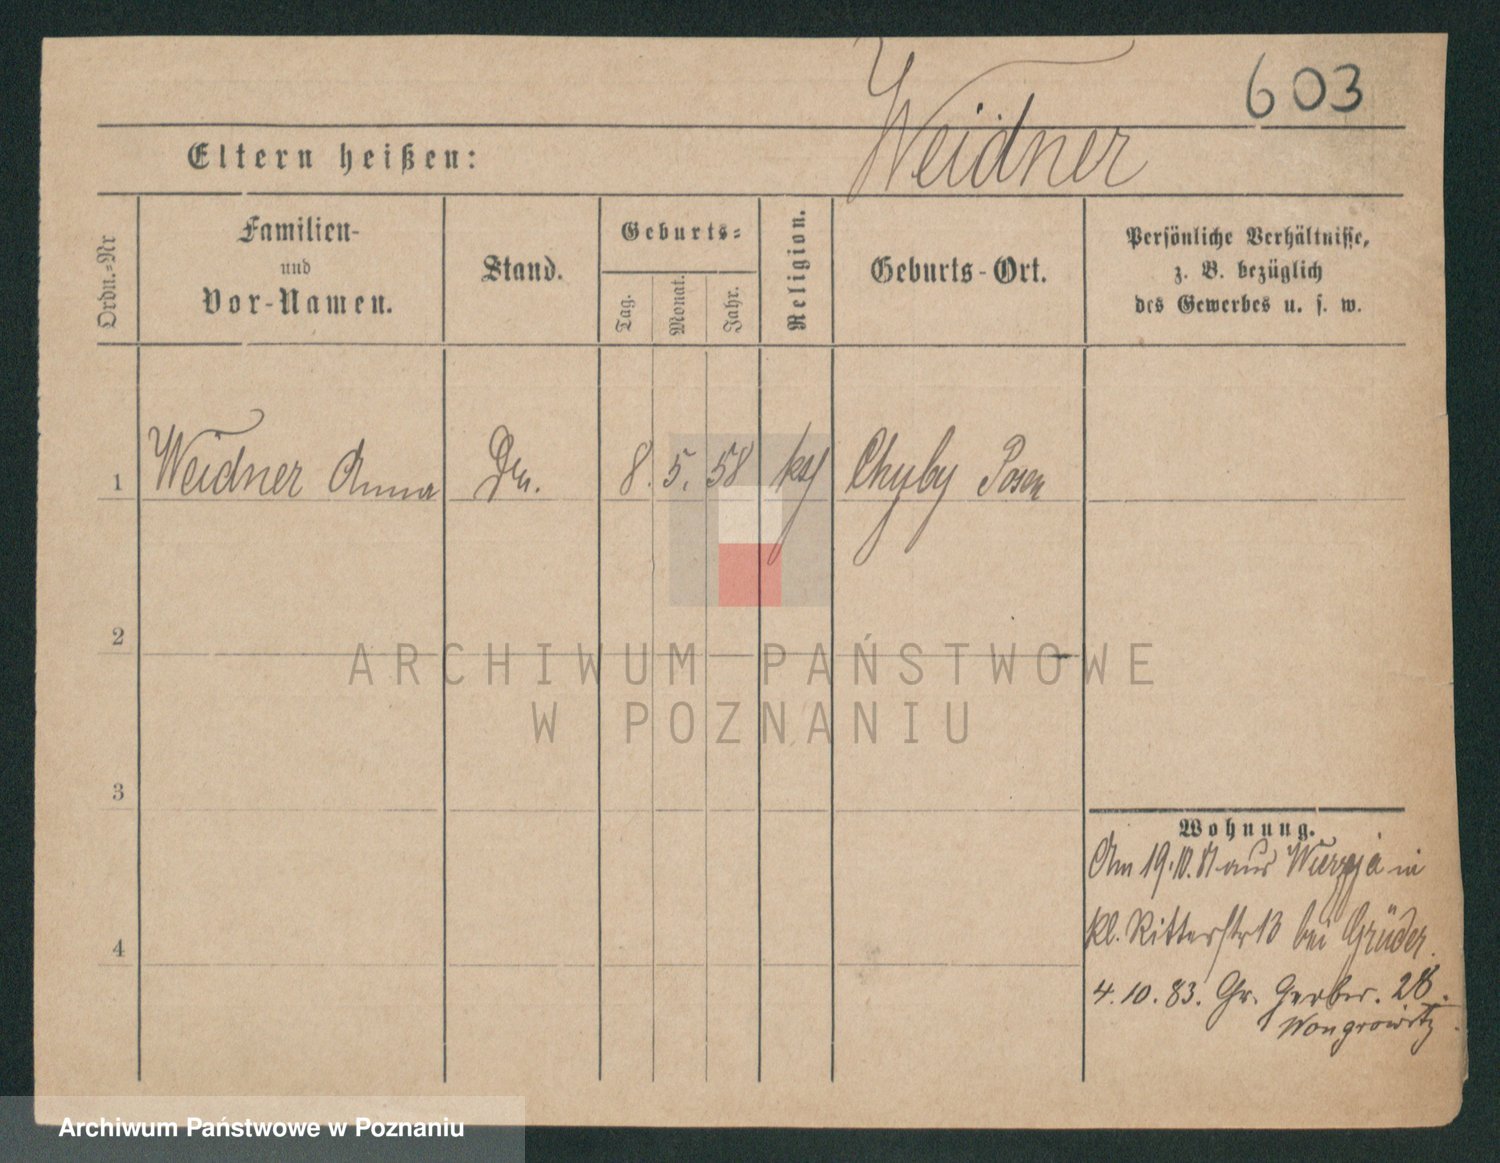 603
Weidner
Eltern heißen:
Ordn.=Nr
Familien-
und
Vor-Namen.
Stand.
Geburts=
Tag.
Monat.
Jahr.
Religion.
Geburts-Ort.
Persönliche Verhältnisse,
z. B. bezüglich
des Gewerbes u. s. w.
1 Weidner Anna 8. 5. 58 Chyby Posen
2
ARCHIWUM PAŃSTWOWE
W POZNANIU
3
Wohnung.
Am 19.10.81 aus in
kl. Ritterstr 13 bei Grüder.
4
4.10.83. Gr. Gerber. 28.
Wongrowitz
Archiwum Państwowe w Poznaniu